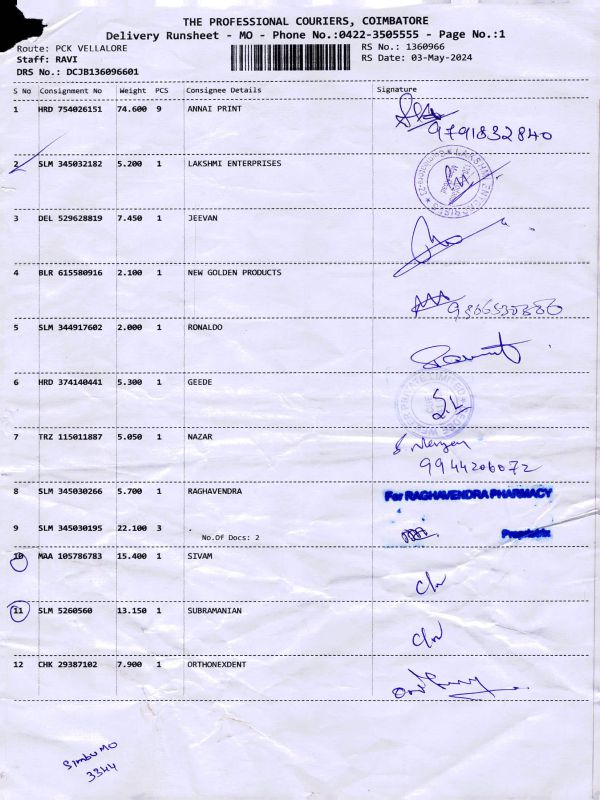 THE PROFESSIONAL COURIERS, COIMBATORE
Delivery Runsheet - MO - Phone No.:0422-3505555 - Page No.:1
Route: PCK VELLALORE RS No.: 1360966
Staff: RAVI RS Date: 03-May-2024
DRS No.: DCJB136096601
S No Consignment No Weight PCS Consignee Details Signature
1 HRD 754026151 74.600 9 ANNAI PRINT
9791832840
2 SLM 345032182 5.200 1 LAKSHMI ENTERPRISES
3 DEL 529628819 7.450 1 JEEVAN
4 BLR 615580916 2.100 1 NEW GOLDEN PRODUCTS
5 SLM 344917602 2.000 1 RONALDO
6 HRD 374140441 5.300 1 GEEDE
7 TRZ 115011887 5.050 1 NAZAR
9944206072
8 SLM 345030266 5.700 1 RAGHAVENDRA For RAGHAVENDRA PHARMACY
9 SLM 345030195 22.100 3 .
No.Of Docs: 2 Proprietrix
10 MAA 105786783 15.400 1 SIVAM
11 SLM 5260560 13.150 1 SUBRAMANIAN
12 CHK 29387102 7.900 1 ORTHONEXDENT
3344